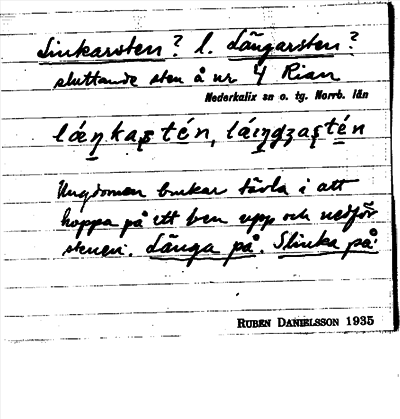 Linkarsten? l. Längarsten?
sluttande sten å nr 4 Rian
Nederkalix sn o. tg. Norrb. län
Ungdomen brukar tävla i att
hoppa på ett ben upp och nedför
stenen. Länga på. Slinka på!
RUBEN DANIELSSON 1935